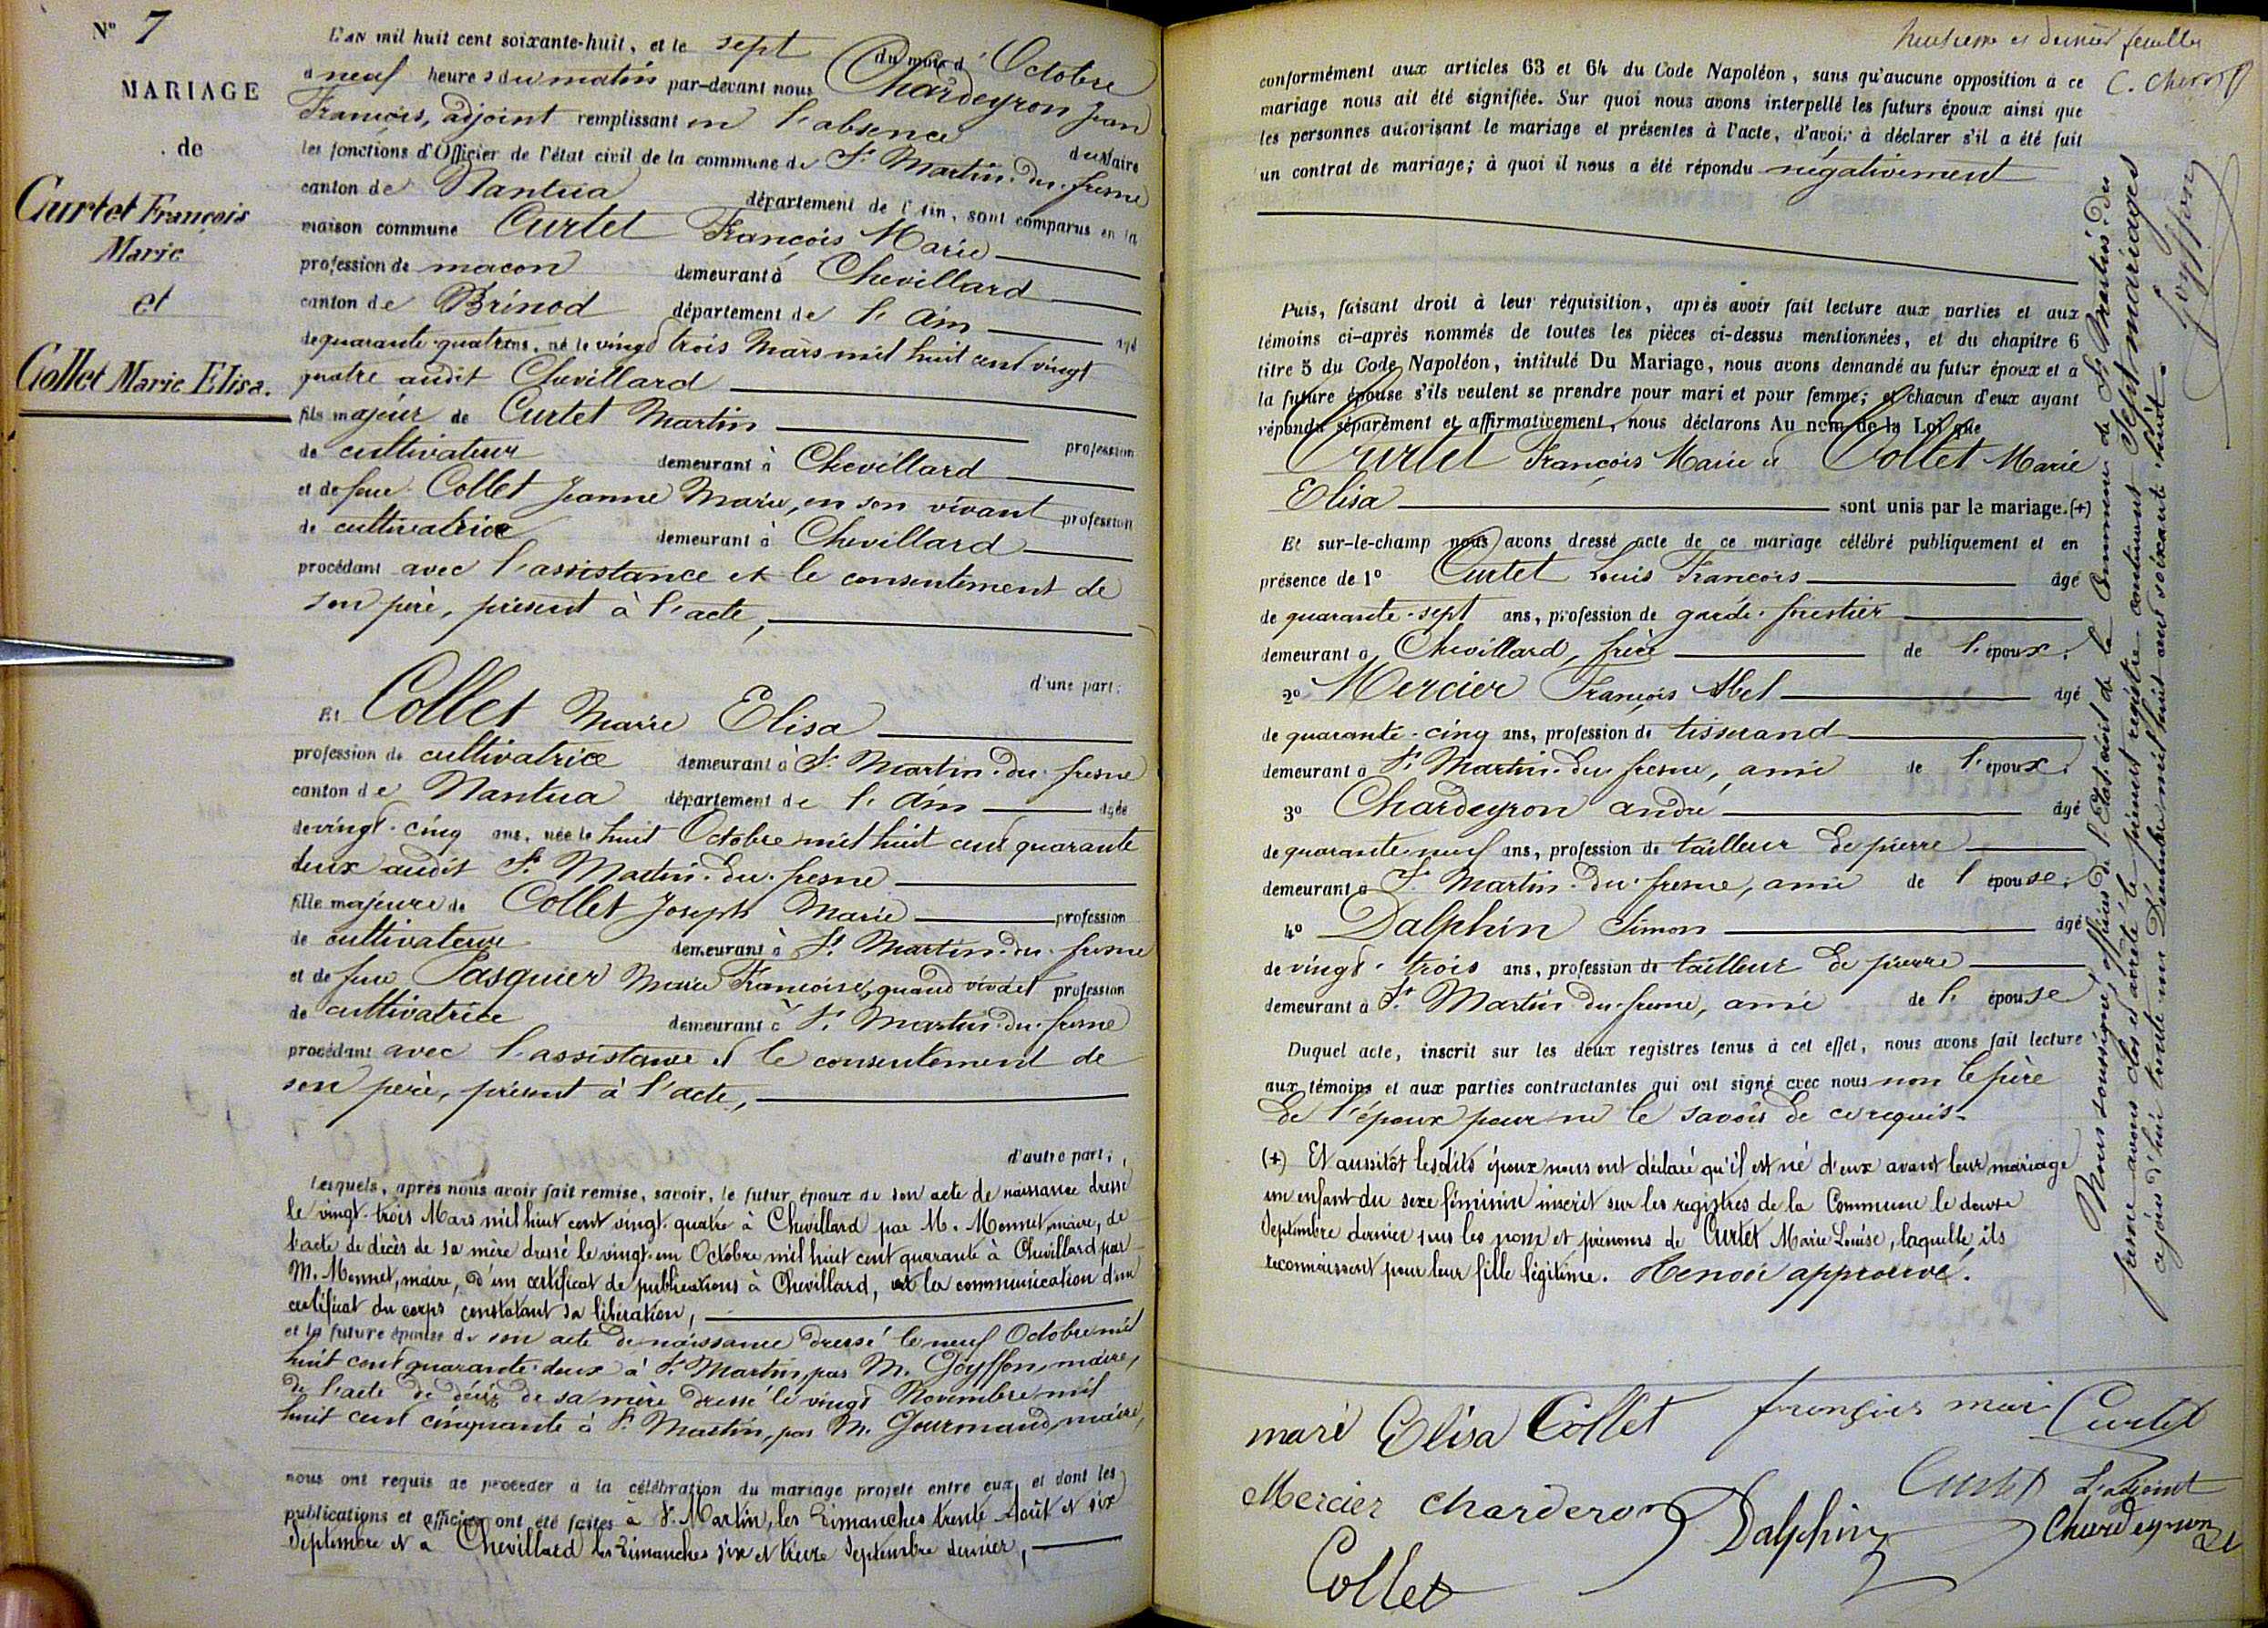 N° 7
MARIAGE
de
Curtet François
Marie
et
Collet Marie Elisa.
L'AN mil huit cent soixante-huit, et le sept du mois d'Octobre
à neuf heures du matin par-devant nous Chardeyron Jean
François, adjoint remplissant en l'absence du Maire
les fonctions d'Officier de l'état civil de la commune de St Martin-du-fresne
canton de Nantua département de l'Ain, sont comparus en la
maison commune Curtet François Marie
profession de maçon demeurant à Chevillard
canton de Brénod département de l'Ain âgé
de quarante-quatre ans, né le vingt trois Mars mil huit cent vingt
quatre audit Chevillard
fils majeur de Curtet Martin profession
de cultivateur demeurant à Chevillard
et de feue Collet Jeanne Marie, en son vivant profession
de cultivatrice demeurant à Chevillard
procédant avec l'assistance et le consentement de
son père, présent à l'acte,
d'une part;
Et Collet Marie Elisa
profession de cultivatrice demeurant à St Martin-du-fresne
canton de Nantua département de l'Ain âgée
de vingt-cinq ans, née le huit Octobre mil huit cent quarante
deux audit St Martin-du-fresne
fille majeure de Collet Joseph Marie profession
de cultivateur demeurant à St Martin-du-fresne
et de feue Pasquier Marie Françoise, quand vivait profession
de cultivatrice demeurant à St Martin-du-fresne
procédant avec l'assistance et le consentement de
son père, présent à l'acte,
d'autre part;
Lesquels, après nous avoir fait remise, savoir, le futur époux de son acte de naissance dressé
le vingt-trois Mars mil huit cent vingt-quatre à Chevillard par M. Monnet, maire, de
l'acte de décès de sa mère dressé le vingt-un Octobre mil huit cent quarante à Chevillard par
M. Monnet, maire, d'un certificat de publications à Chevillard, et la communication d'un
certificat du corps constatant sa libération,
et la future épouse de son acte de naissance dressé le neuf Octobre mil
huit cent quarante-deux à St Martin, par M. Goyffon, maire,
de l'acte de décès de sa mère dressé le vingt Novembre mil
huit cent cinquante à St Martin, par M. Gourmand, maire,
nous ont requis de procéder à la célébration du mariage projeté entre eux, et dont les
publications et affiches ont été faites à St Martin, les Dimanches trente Août et six
Septembre et à Chevillard les Dimanches six et treize Septembre dernier,
huitième et dernier feuillet
conformément aux articles 63 et 64 du Code Napoléon, sans qu'aucune opposition à ce
mariage nous ait été signifiée. Sur quoi nous avons interpellé les futurs époux ainsi que
les personnes autorisant le mariage et présentes à l'acte, d'avoir à déclarer s'il a été fait
un contrat de mariage; à quoi il nous a été répondu négativement
Puis, faisant droit à leur réquisition, après avoir fait lecture aux parties et aux
témoins ci-après nommés de toutes les pièces ci-dessus mentionnées, et du chapitre 6
titre 5 du Code Napoléon, intitulé Du Mariage, nous avons demandé au futur époux et à
la future épouse s'ils veulent se prendre pour mari et pour femme; et chacun d'eux ayant
répondu séparément et affirmativement, nous déclarons Au nom de la Loi que
Curtet François Marie et Collet Marie
Elisa sont unis par le mariage. (+)
Et sur-le-champ nous avons dressé acte de ce mariage célébré publiquement et en
présence de 1° Curtet Louis François âgé
de quarante-sept ans, profession de garde-forestier
demeurant à Chevillard, frère de l'époux.
2° Mercier François Abel âgé
de quarante-cinq ans, profession de tisserand
demeurant à St Martin-du-fresne, ami de l'époux.
3° Chardeyron André âgé
de quarante-neuf ans, profession de tailleur de pierre
demeurant à St Martin-du-fresne, ami de l'épouse.
4° Dalphin Simon âgé
de vingt-trois ans, profession de tailleur de pierre
demeurant à St Martin-du-fresne, ami de l'épouse
Duquel acte, inscrit sur les deux registres tenus à cet effet, nous avons fait lecture
aux témoins et aux parties contractantes qui ont signé avec nous non le père
de l'époux pour ne le savoir de ce requis.
(+) Et aussitôt lesdits époux nous ont déclaré qu'il est né d'eux avant leur mariage
un enfant du sexe féminin inscrit sur les registres de la Commune le douze
Septembre dernier sous les noms et prénoms de Curtet Marie Louise, laquelle ils
reconnaissent pour leur fille légitime. Renvoi approuvé.
mari Elisa Collet françois mari Curtet
Mercier Charderon Dalphin Curtet L'adjoint
Chardeyron
Collet
Nous soussigné, officier de l'Etat-civil de la Commune de St Martin-du
fresne avons clos et arrêté le présent registre contenant Sept mariages
cejourd'hui trente un Décembre mil huit cent soixante-huit.
Goyffon